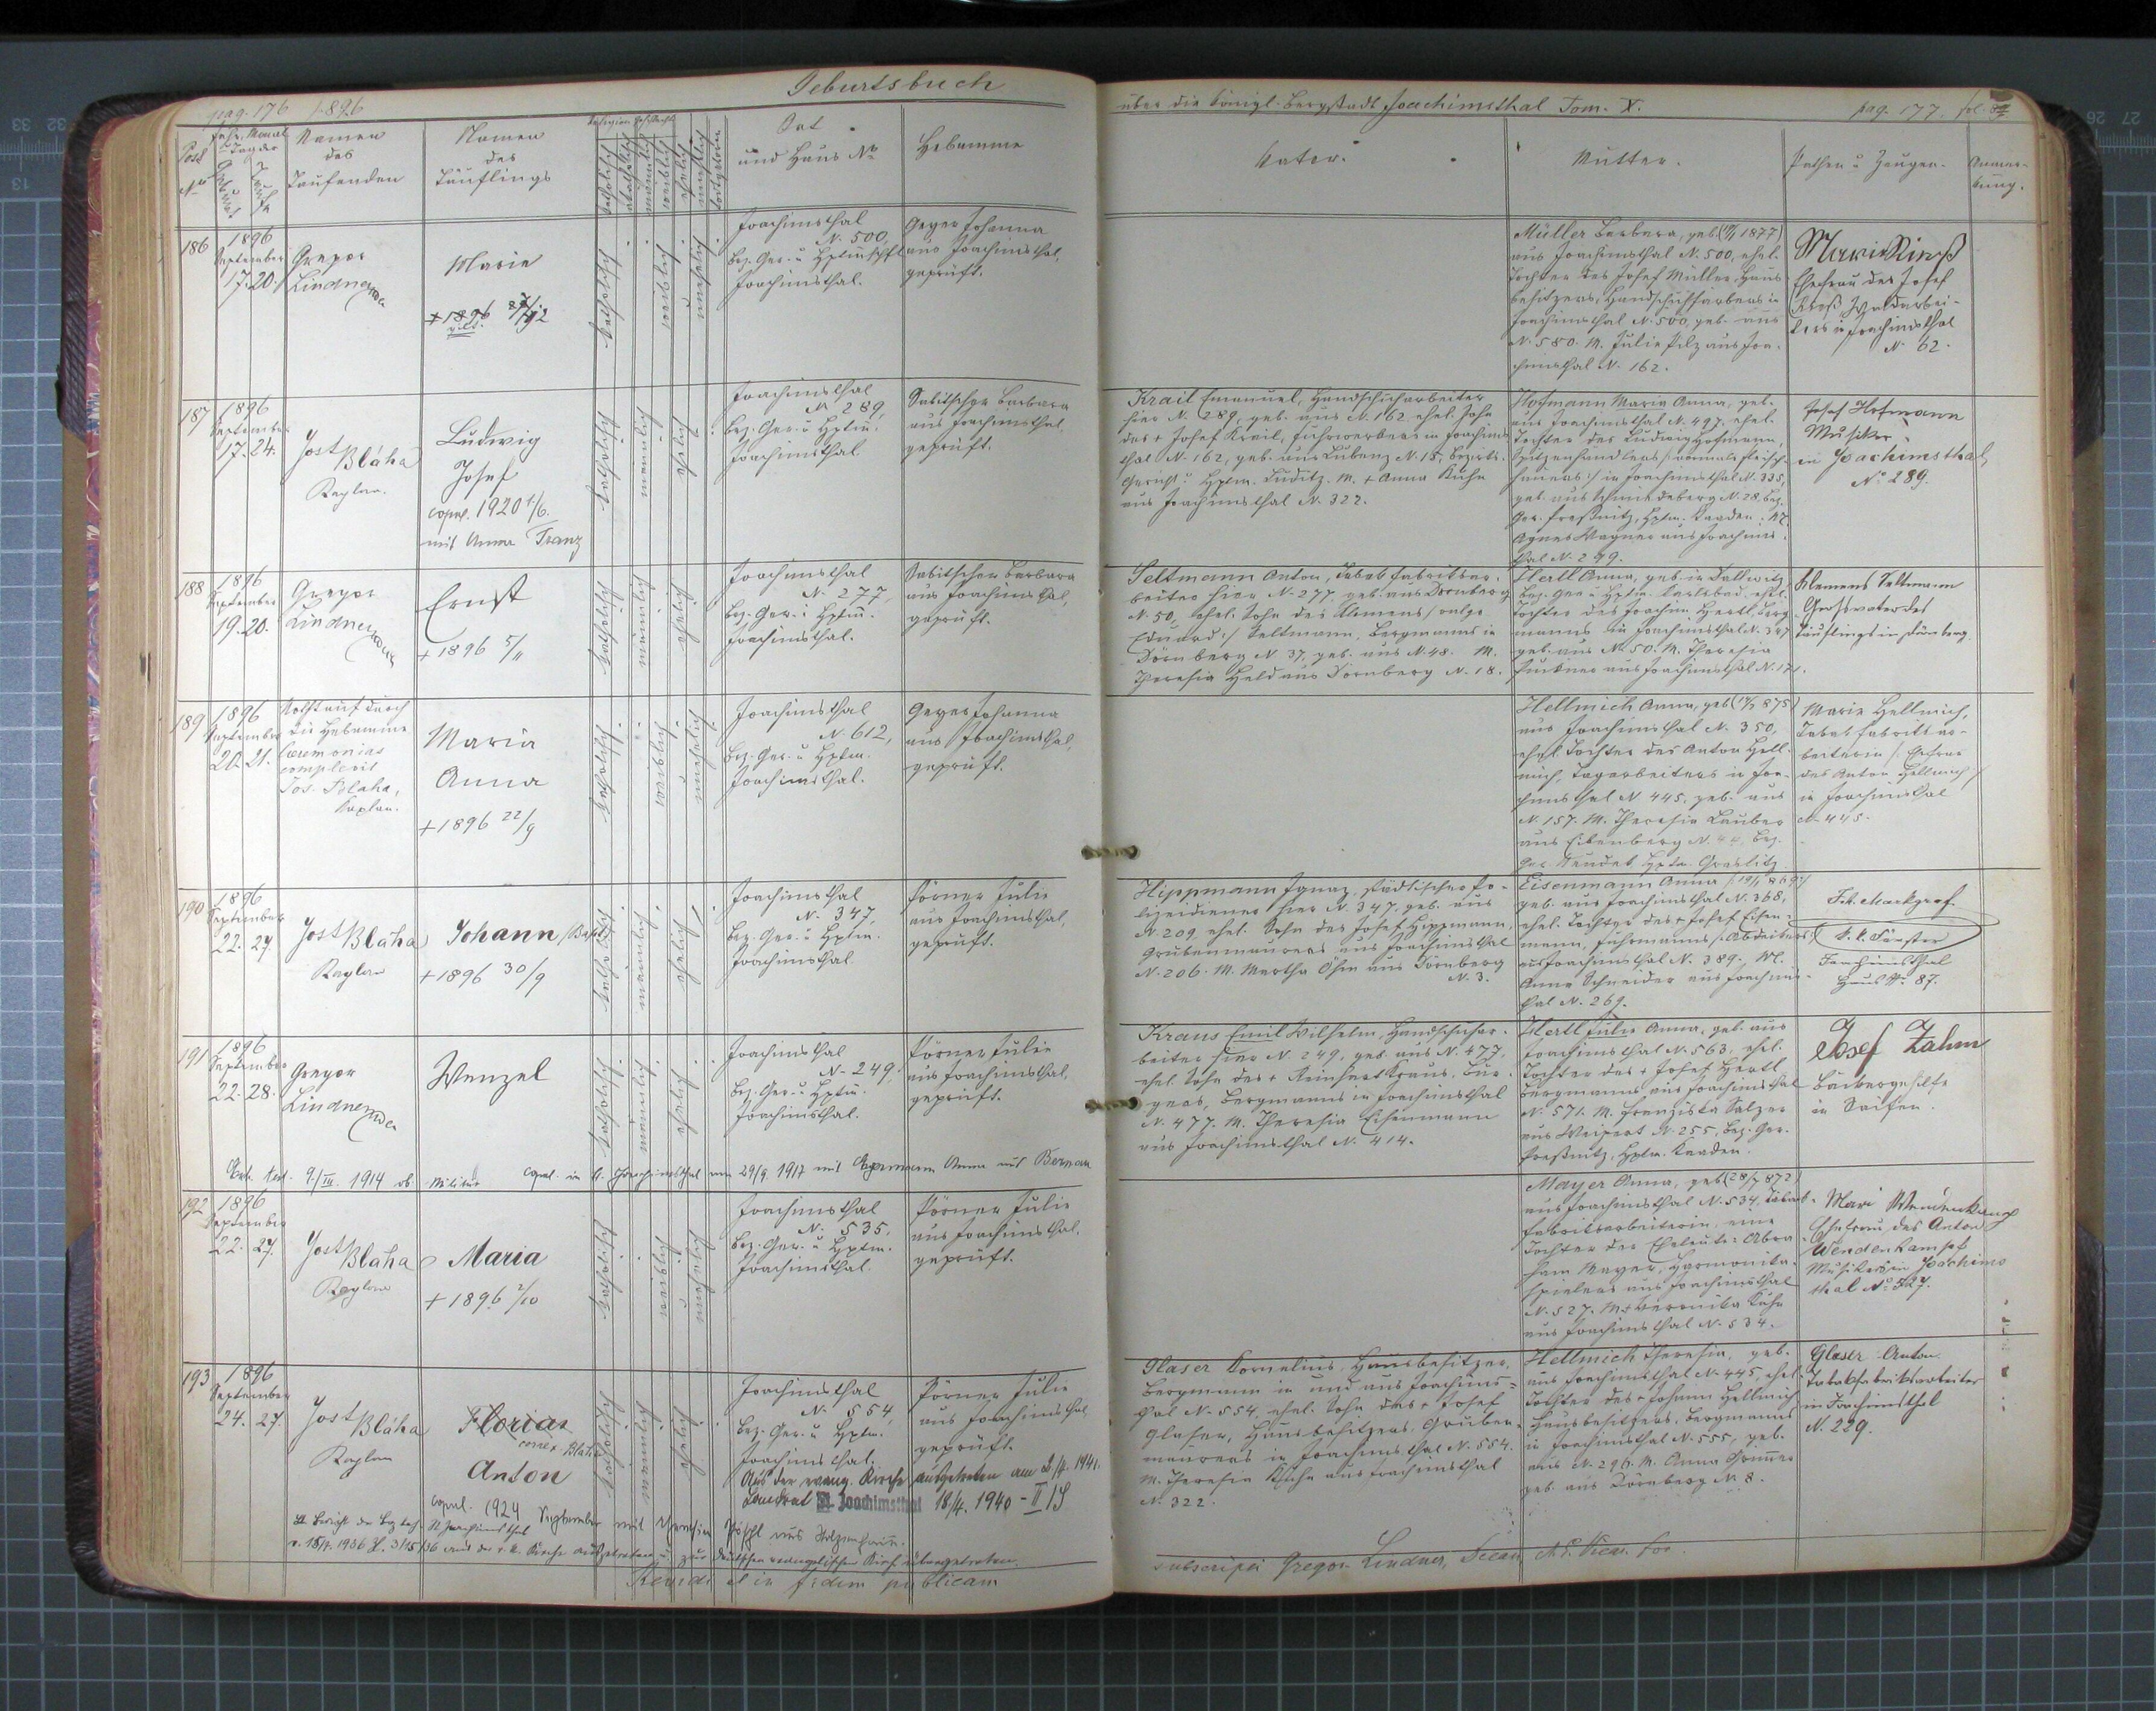 Geburtsbuch
pag. 176 1896
Post
No
Jahr, Monat
u. Tag der
Namen
des
Taufenden
Namen
des
Täuflings
Religion
katholisch
männlich
weiblich
ehelich
unehelich
Ort
und Haus No
Hebamme
186
1896
September
17. 20.
Gregor
Lindner
Marie
+ 1896
katholisch
weiblich
unehelich
Joachimsthal
N. 500,
Bez. Ger. u. Hptmschft
Joachimsthal.
Geyer Johanna
aus Joachimsthal,
geprüft.
187
1896
September
17. 24.
Jos. Bláha
Kaplan.
Ludwig
Josef
copul. 1920 1/6.
mit Anna Franz
katholisch
männlich
ehelich
Joachimsthal
N. 289,
Bez. Ger. u. Hptm.
Joachimsthal
Barbara
aus Joachimsthal,
geprüft.
188
1896
September
19. 20.
Gregor
Lindner
Ernst
+ 1896 5/11
katholisch
männlich
ehelich
Joachimsthal
N. 277,
Bez. Ger. u. Hptm.
Joachimsthal.
Barbara
aus Joachimsthal,
geprüft.
189
1896
September
20. 21.
Nothtauf durch
die Hebamme
Ceremonias
complevit
Jos. Blaha,
Kaplan.
Maria
Anna
+ 1896 22/9
katholisch
weiblich
unehelich
Joachimsthal
N. 612,
Bez. Ger. u. Hptm.
Joachimsthal.
Geyer Johanna
aus Joachimsthal,
geprüft.
190
1896
September
22. 27.
Jos. Bláha
Kaplan
Johann
+ 1896 30/9
katholisch
männlich
ehelich
Joachimsthal
N. 347,
Bez. Ger. u. Hptm.
Joachimsthal
Pörner Julie
aus Joachimsthal,
geprüft.
191
1896
September
22. 28.
Gregor
Lindner
Wenzel
katholisch
männlich
ehelich
Joachimsthal
N. 249,
Bez. Ger. u. Hptm.
Joachimsthal.
Pörner Julie
aus Joachimsthal,
geprüft.
9./III. 1914 ob copul. in St. Joachimsthal am 29/9 1917 mit Anna aus
192
1896
September
22. 27.
Jos. Bláha
Kaplan
Maria
+ 1896 2/10
katholisch
weiblich
unehelich
Joachimsthal
N. 535,
Bez. Ger. u. Hptm.
Joachimsthal.
Pörner Julie
aus Joachimsthal.
geprüft.
193
1896
September
24. 27.
Jos. Bláha
Kaplan
Florian
Anton
katholisch
männlich
ehelich
Joachimsthal
N. 554,
Bez. Ger. u. Hptm.
Joachimsthal.
Pörner Julie
aus Joachimsthal
geprüft.
Aus der evang. Kirche ausgetreten am 1941.
Landrat St. Joachimsthal 18/4. 1940 - II/5
copul. 1924 September mit Theresia aus
1936 aus der r. k. Kirche ausgetreten u. zur Deutschen evangelischen Kirche übergetreten.
Revidi et in fidem publicam
über die königl. Bergstadt Joachimsthal Tom. X.
pag. 177. fol. 89
Vater.
Mutter.
Pathen u. Zeugen.
Anmer-
kung.
Müller Barbara, geb. 1877
aus Joachimsthal N. 500, ehel.
Tochter des Josef Müller, Haus-
besitzers, Handschuhfärbers in
Joachimsthal N. 500, geb. aus
N. 580. M. Julie Pilz aus Joa-
chimsthal N. 162.
Ehefrau des Josef
Waldarbei-
ters in Joachimsthal
N. 62.
Krail Emanuel, Handschuharbeiter
hier N. 289, geb. aus N. 162 ehel. Sohn
des + Josef Krail, Fuhrwerkers in Joachims-
thal N. 162, geb. aus Lubenz N. 18, Bezirks-
Gericht u. Hptm. Luditz. M. + Anna Kuhn
aus Joachimsthal N. 322.
Hofmann Maria Anna, geb.
aus Joachimsthal N. 497, ehel.
Tochter des Ludwig Hofmann,
Spitzenhändlers, vormals Fleisch-
hauers in Joachimsthal N. 335,
geb. aus Schmiedeberg N. 28, Bez.
Ger. Preßnitz, Hptm. Kaaden. M.
Agnes Wagner aus Joachims-
thal N. 299.
Josef Hofmann
Musiker
in Joachimsthal,
No 289.
Seltmann Anton, Tabakfabrikar-
beiter hier N. 277, geb. aus Dörnberg
N. 50, ehel. Sohn des Klemens vulgo
Eduard Seltmann, Bergmanns in
Dörnberg N. 37, geb. aus N. 48. M.
Theresia Held aus Dörnberg N. 18.
Hertl Anna, geb. in Dallwitz
Bez. Ger. u. Hptm. Karlsbad, ehel.
Tochter des Joachim Hertl, Berg-
manns in Joachimsthal N. 347
geb. aus N. 50. M. Theresia
aus Joachimsthal N. 171.
Klemens Seltmann
Großvater des
Täuflings in Dürnberg.
Hellmich Anna, geb. 875
aus Joachimsthal N. 350,
ehel. Tochter des Anton Hell-
mich, Tagarbeiters in Joa-
chimsthal N. 445, geb. aus
N. 157. M. Theresia Lauber
aus Eibenberg N. 44, Bez.
Ger. Neudek, Hptm. Graslitz.
Marie Hellmich,
Tabakfabrikar-
beiterin Ehefrau
des Anton Hellmich
in Joachimsthal
N. 445.
Hippmann Ignaz, städtischer Po-
lizeidiener hier N. 347, geb. aus
N. 209, ehel. Sohn des Josef Hippmann,
Grubenmaurers aus Joachimsthal
N. 206. M. Martha Öhm aus Dörnberg
N. 3.
Eisenmann Anna 869
geb. aus Joachimsthal N. 368,
ehel. Tochter des + Josef Eisen-
mann, Fuhrmanns
aus Joachimsthal N. 389. M.
Anna Schneider aus Joachims-
thal N. 269.
Markgraf.
k. k. Förster
Joachimsthal
Haus No. 87.
Kraus Emil Wilhelm, Handschuhar-
beiter hier N. 249, geb. aus N. 477,
ehel. Sohn des + Reinhart Kraus, Bür-
gers, Bergmanns in Joachimsthal
N. 477. M. Theresia Eisenmann
aus Joachimsthal N. 414.
Hertl Julie Anna, geb. aus
Joachimsthal N. 563, ehel.
Tochter des + Josef Hertl
Bergmanns aus Joachimsthal
N. 571. M. Franziska Salzer
aus Weipert N. 255, Bez. Ger.
Preßnitz, Hptm. Kaaden.
Josef Zahm
Bäckergehilfe
in Saifen.
Mayer Anna, geb. 28/7 872
aus Joachimsthal N. 534, Tabak-
fabriksarbeiterin, eine
Tochter der Eheleute: Abra-
ham Mayer, Harmonika-
spielers aus Joachimsthal
N. 527. M. Veronika Kuhn
aus Joachimsthal N. 534.
Mari Wendenkampf
Ehefrau des Anton
Wendenkampf
Musiker in Joachims
thal No 527.
Glaser Kornelius, Hausbesitzer,
Bergmann in und aus Joachims-
thal N. 554, ehel. Sohn des + Josef
Glaser, Hausbesitzers, Gruben-
maurers in Joachimsthal N. 554.
M. Theresia Kuhn aus Joachimsthal
N. 322.
Hellmich Theresia, geb.
aus Joachimsthal N. 445, ehel.
Tochter des + Johann Hellmich
Hausbesitzers, Bergmanns
in Joachimsthal N. 555, geb.
aus N. 296. M. Anna
geb. aus Dörnberg N. 8.
Glaser Anton
Tabakfabriksarbeiter
in Joachimsthal
N. 229.
subscripsi Gregor Lindner, Decan